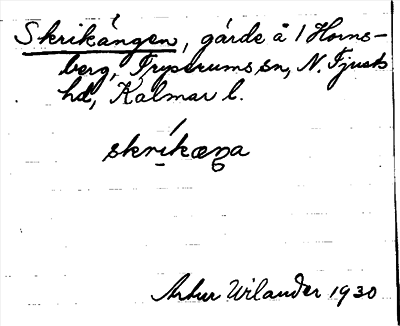 Skrikängen, gärde å 1 Horns-
berg, Tryserums sn, N. Tjusts
hd, Kalmar l.
skríkæŋa
Artur Wilander 1930